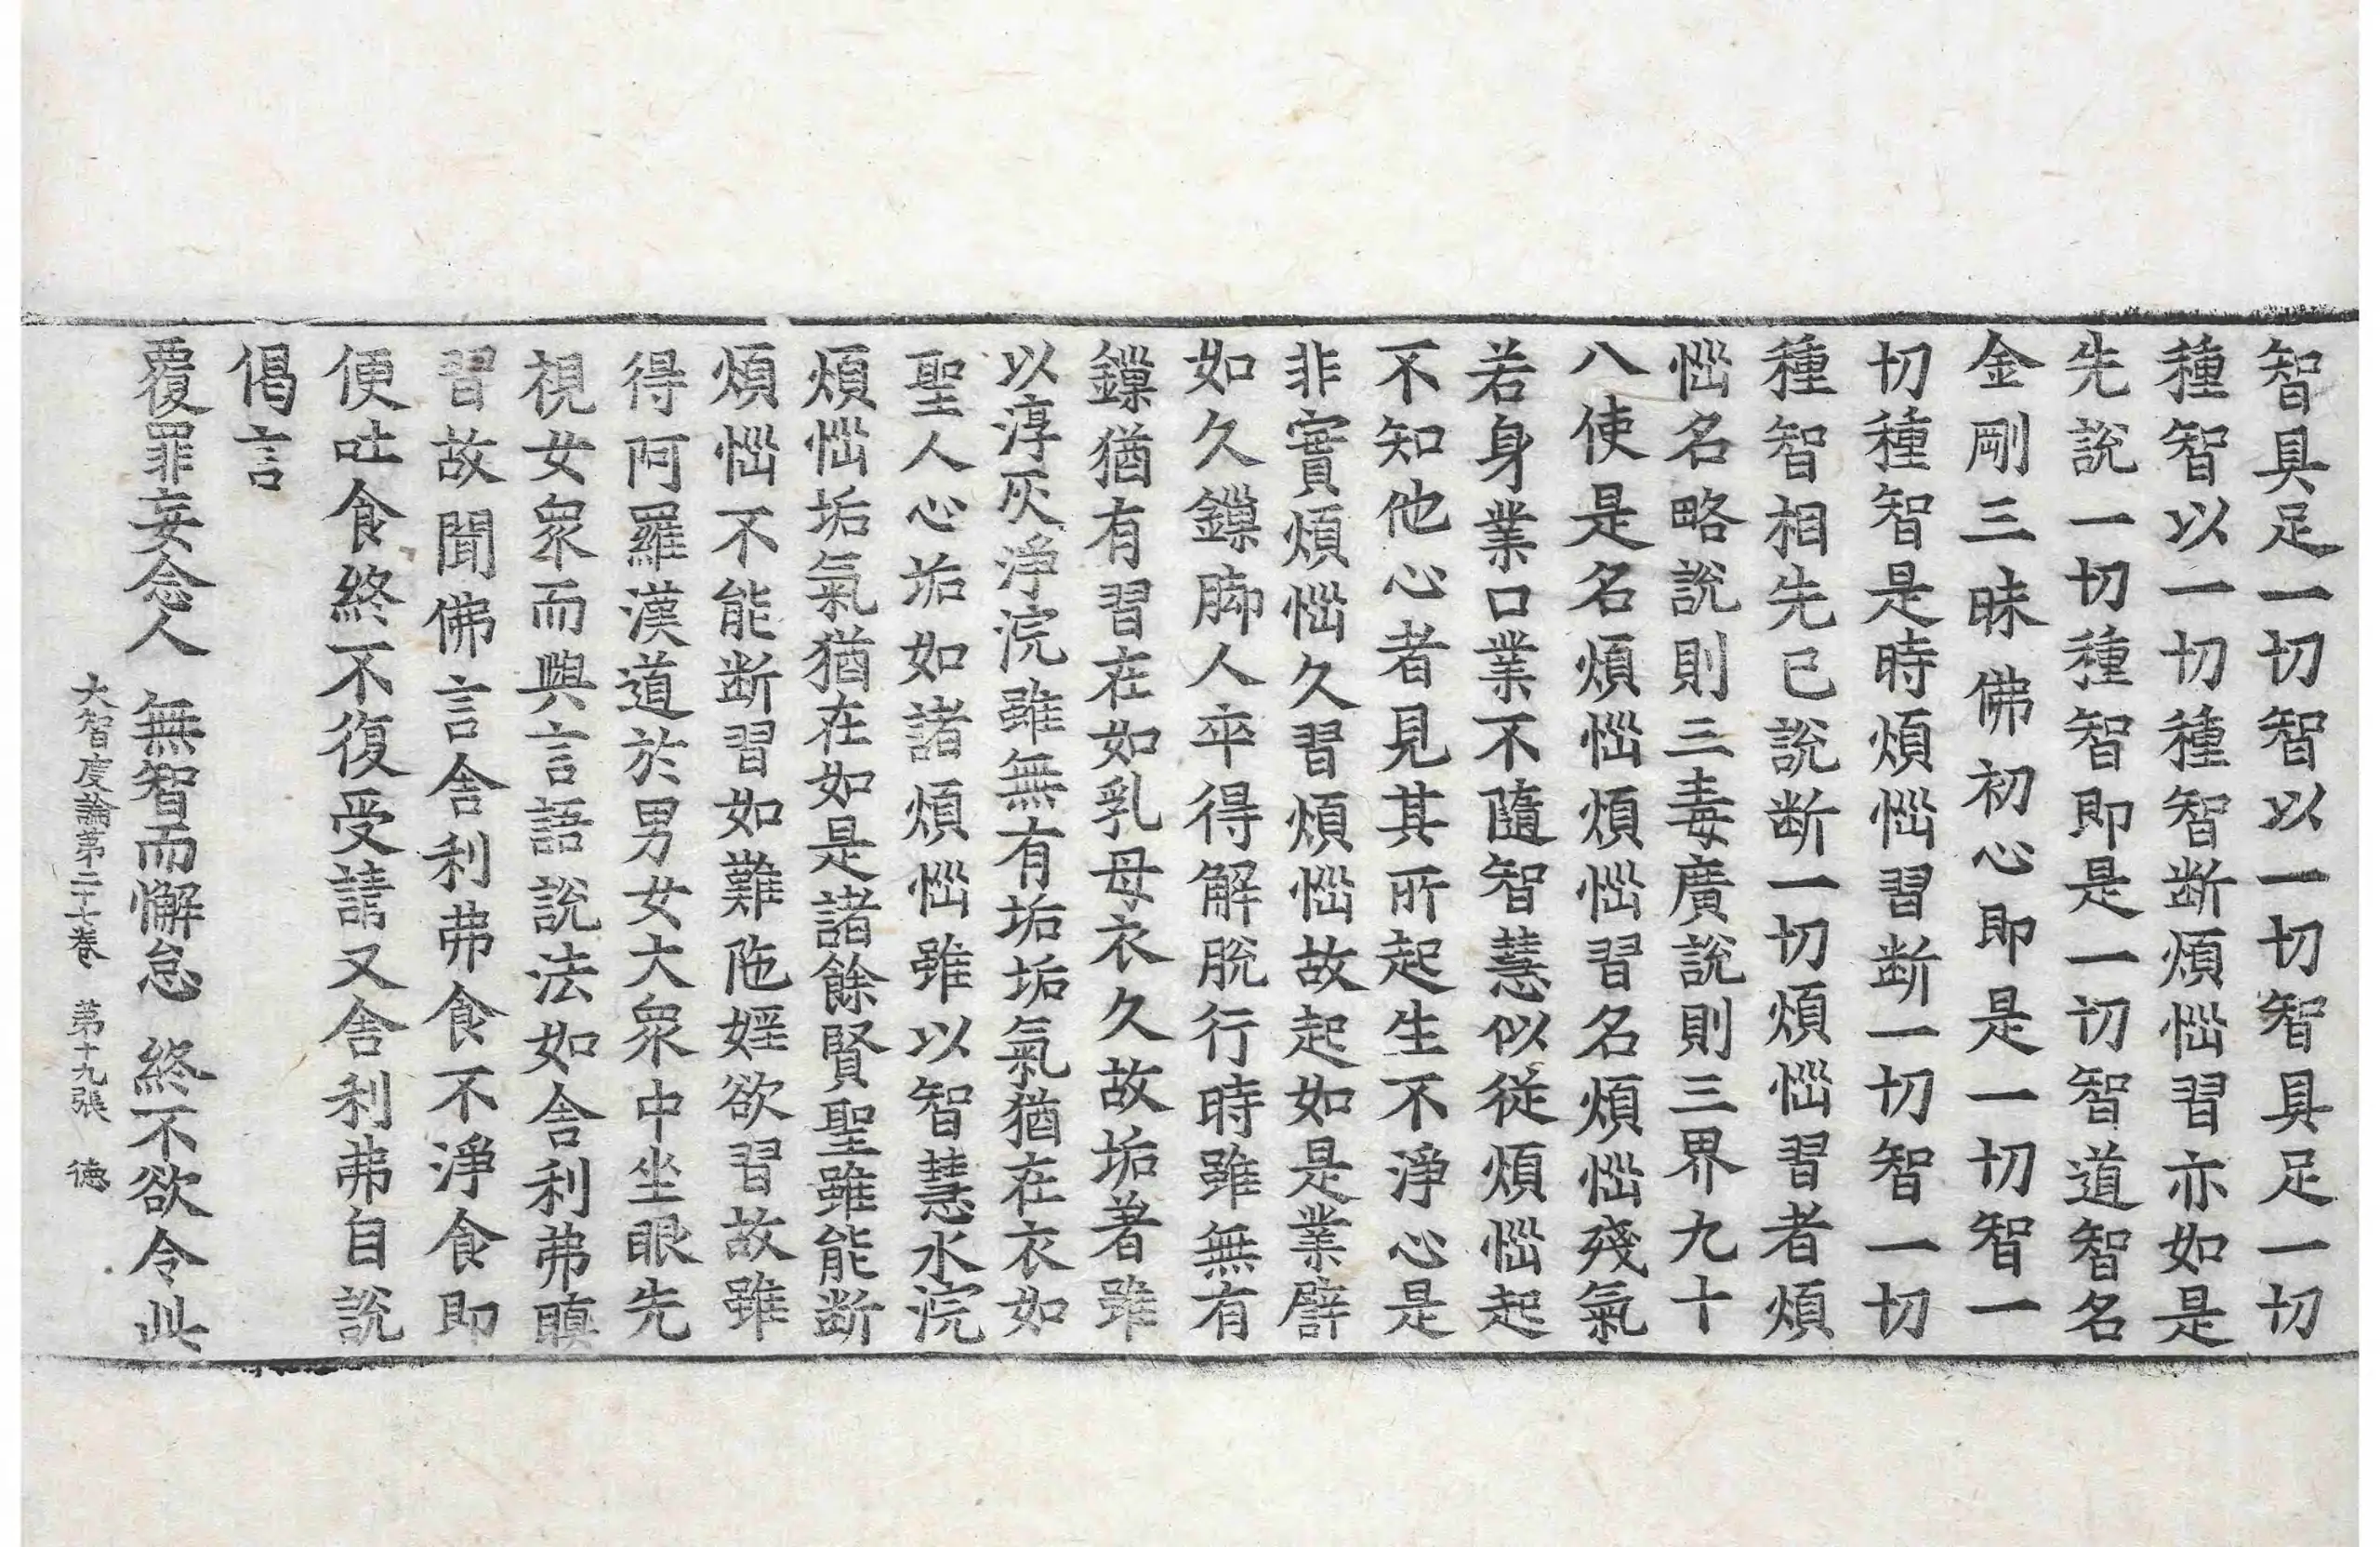 智具足一切智以一切智具足一切
種智以一切種智断煩惱習亦如是
先說一切種智即是一切智道智名
金剛三昧佛初心即是一切智一
切種智是時煩惱習断一切智一切
種智相先已說断一切煩惱習者煩
惱名略說則三毒廣說則三界九十
八使是名煩惱煩惱習名煩惱殘氣
若身業口業不隨智慧似從煩惱起
不知他心者見其所起生不淨心是
非實煩惱久習煩惱故起如是業譬
如久鏁脚人卒得解脫行時雖無有
鏁猶有習在如乳母衣久故垢著雖
以淳灰淨浣雖無有垢垢氣猶在衣如
聖人心垢如諸煩惱雖以智慧水浣
煩惱垢氣猶在如是諸餘賢聖雖能断
煩惱不能断習如難陁婬欲習故雖
得阿羅漢道於男女大衆中坐眼先
視女衆而與言語說法如舍利弗瞋
習故聞佛言舍利弗食不淨食即
便吐食終不復受請又舍利弗自說
偈言
覆罪妄念人 無智而懈怠 終不欲令此
大智度論第二十七卷 第十九張 德